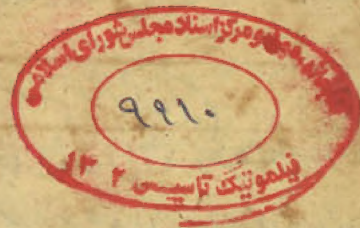 کتابخانه، موزه و مرکز اسناد مجلس شورای اسلامی
۹۹۱۰
فیلموتیک تاسیس ۱۳۰۲